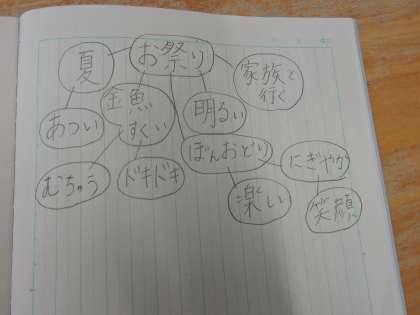 夏
お祭り
家族と
行く
金魚
すくい
明るい
あつい
ぼんおどり
にぎやか
むちゅう
ドキドキ
楽しい
笑顔